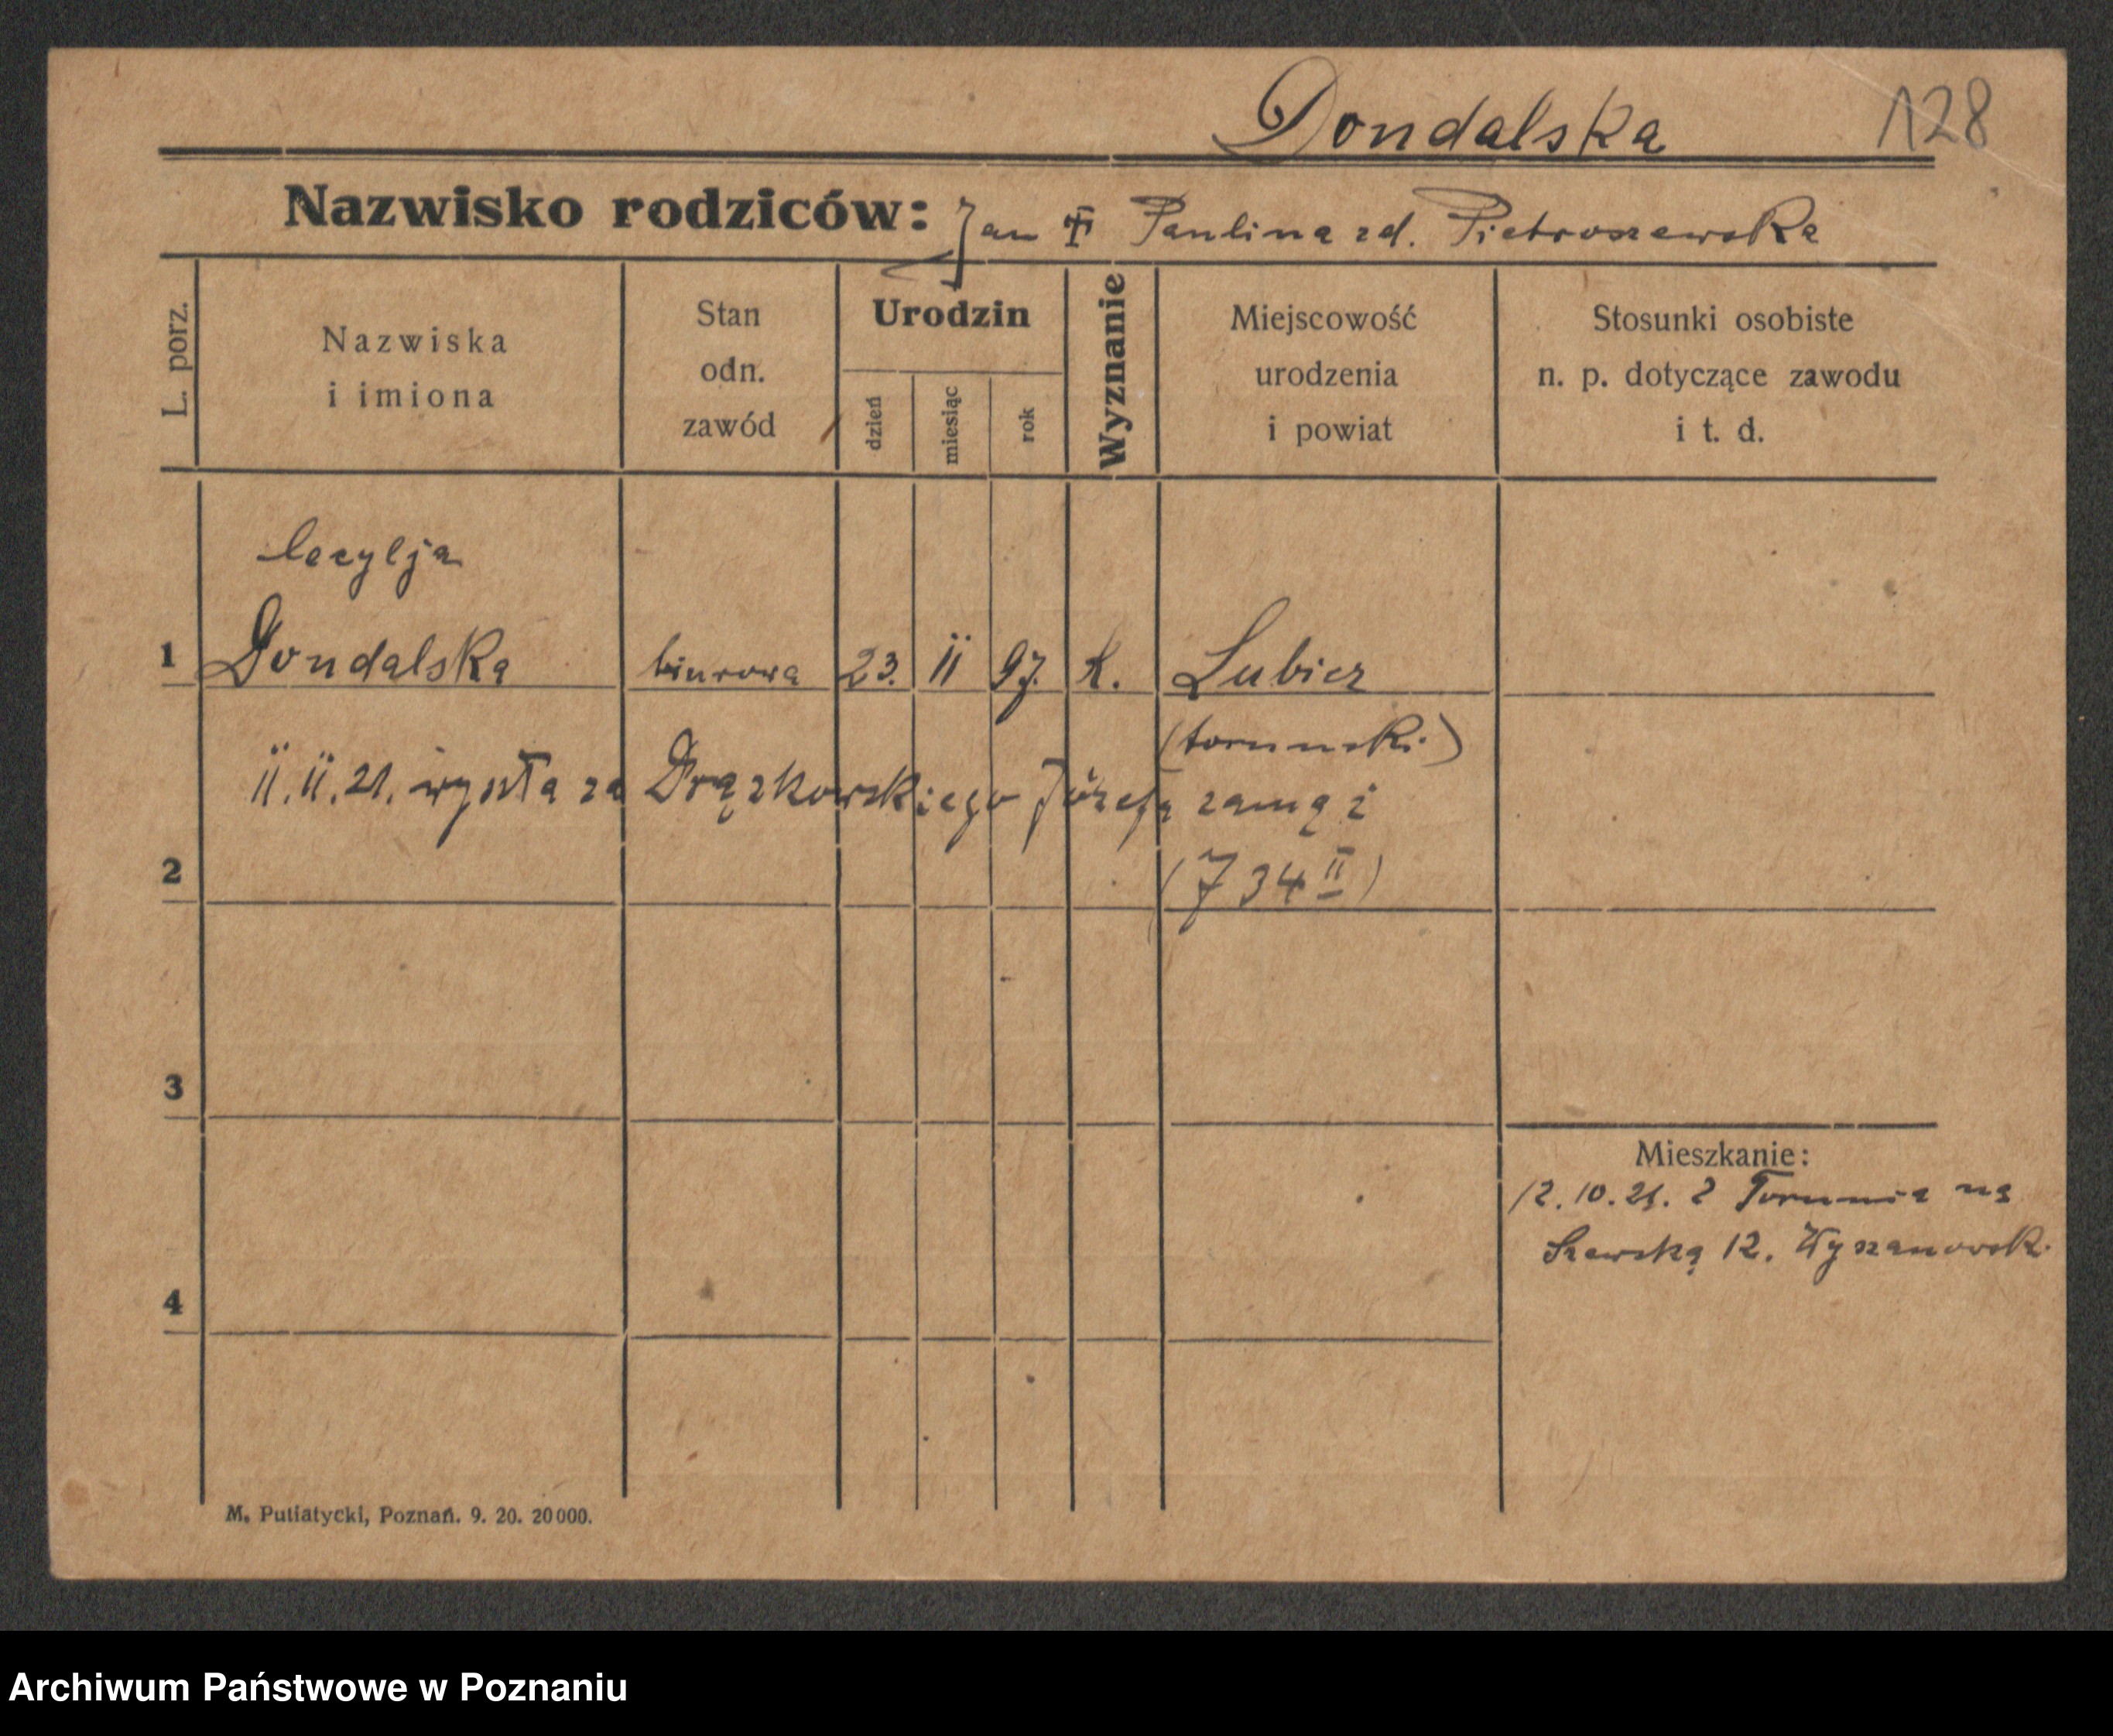 Dondalska 128
Nazwisko rodziców: Jan Paulina zd. Pietroszewska
L. porz.
Nazwiska
i imiona
Stan
odn.
zawód
Urodzin
dzień
miesiąc
rok
Wyznanie
Miejscowość
urodzenia
i powiat
Stosunki osobiste
n. p. dotyczące zawodu
i t. d.
Cecylja
1 Dondalska biurowa 23. 11 97. k. Lubicz
(toruński)
11. 11. 21. wyszła za Drążkowskiego Józefa zamąż
2 (734 II)
3
Mieszkanie:
12. 10. 21. z Torunia na
Szewską 12.
4
M. Putiatycki, Poznań. 9. 20. 20000.
Archiwum Państwowe w Poznaniu